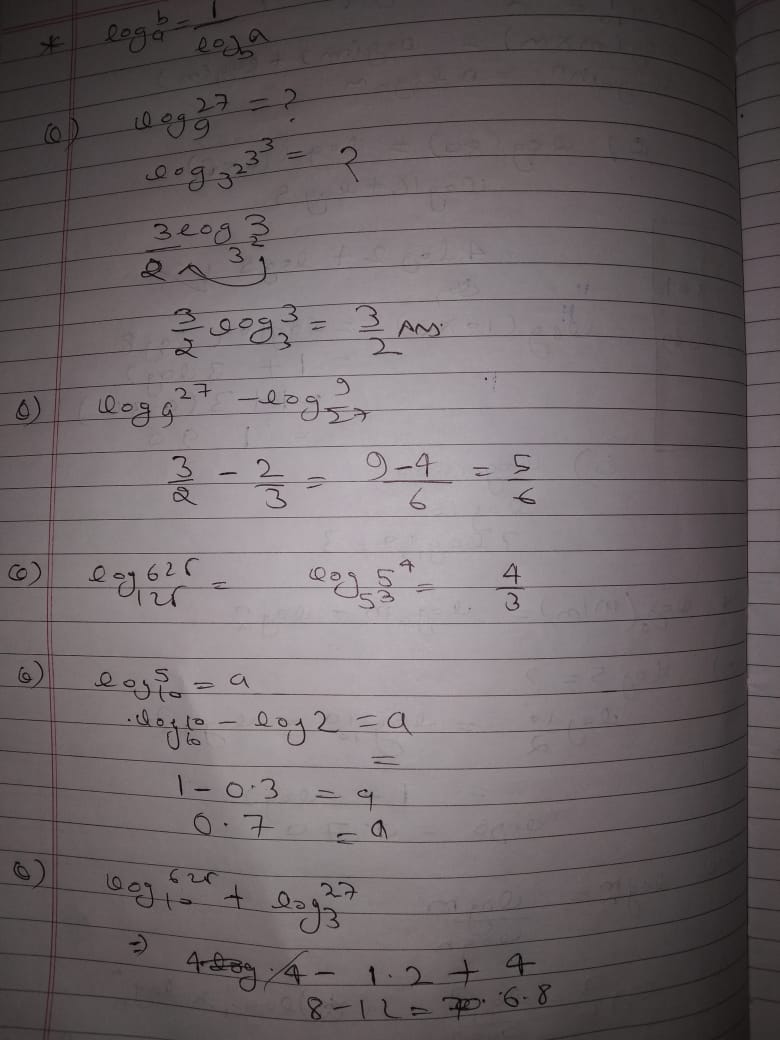 * log_a^b = 1/log_b^a
Q) log_9^27 = ?
log_{3^2} 3^3 = ?
3/2 log_3 3
3/2 log_3^3 = 3/2 Ans.
Q) log_9^27 - log_27^9
3/2 - 2/3 = 9-4/6 = 5/6
Q) log_125^625 = log_{5^3} 5^4 = 4/3
Q) log_10^5 = a
log_10^10 - log 2 = a
=
1 - 0.3 = a
0.7 = a
Q) log_10^625 + log_3^27
⇒ 4 - 1.2 + 4
8 - 12 = 6.8